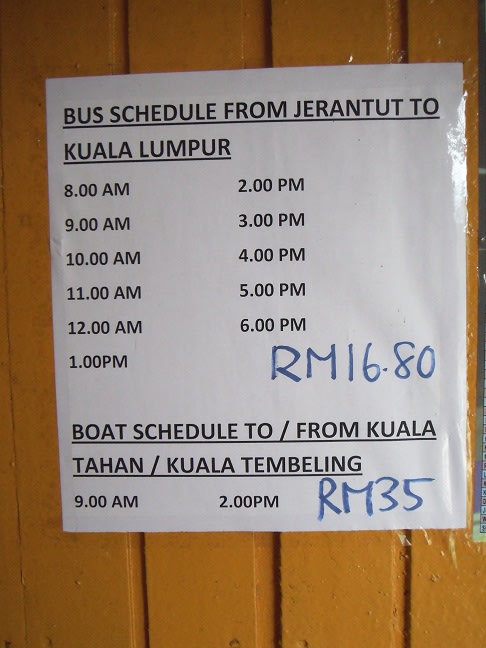 BUS SCHEDULE FROM JERANTUT TO
KUALA LUMPUR
8.00 AM 2.00 PM
9.00 AM 3.00 PM
10.00 AM 4.00 PM
11.00 AM 5.00 PM
12.00 AM 6.00 PM
1.00PM RM16.80
BOAT SCHEDULE TO / FROM KUALA
TAHAN / KUALA TEMBELING
9.00 AM 2.00PM RM35